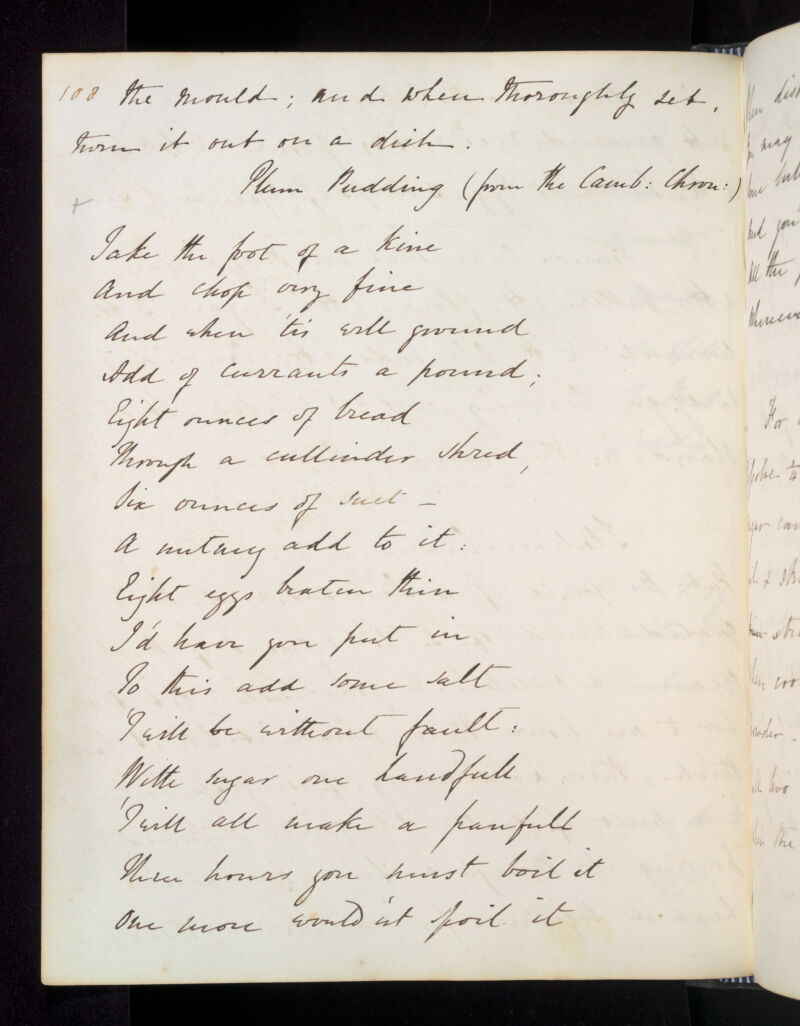 108 the mould; and when thoroughly set,
turn it out on a dish.
Plum Pudding (from the Camb: Chron:)
+
Take the foot of a Kine
And chop very fine
And when 'tis well ground
Add of currants a pound;
Eight ounces of bread
Through a cullinder shred,
Six ounces of suet –
A nutmeg add to it:
Eight eggs beaten thin
I'd have you put in
To this add some salt
'Twill be without fault:
With sugar one handfull
'Twill all make a panfull
Three hours you must boil it
One more would'nt spoil it
may
and you
all the
For
when the